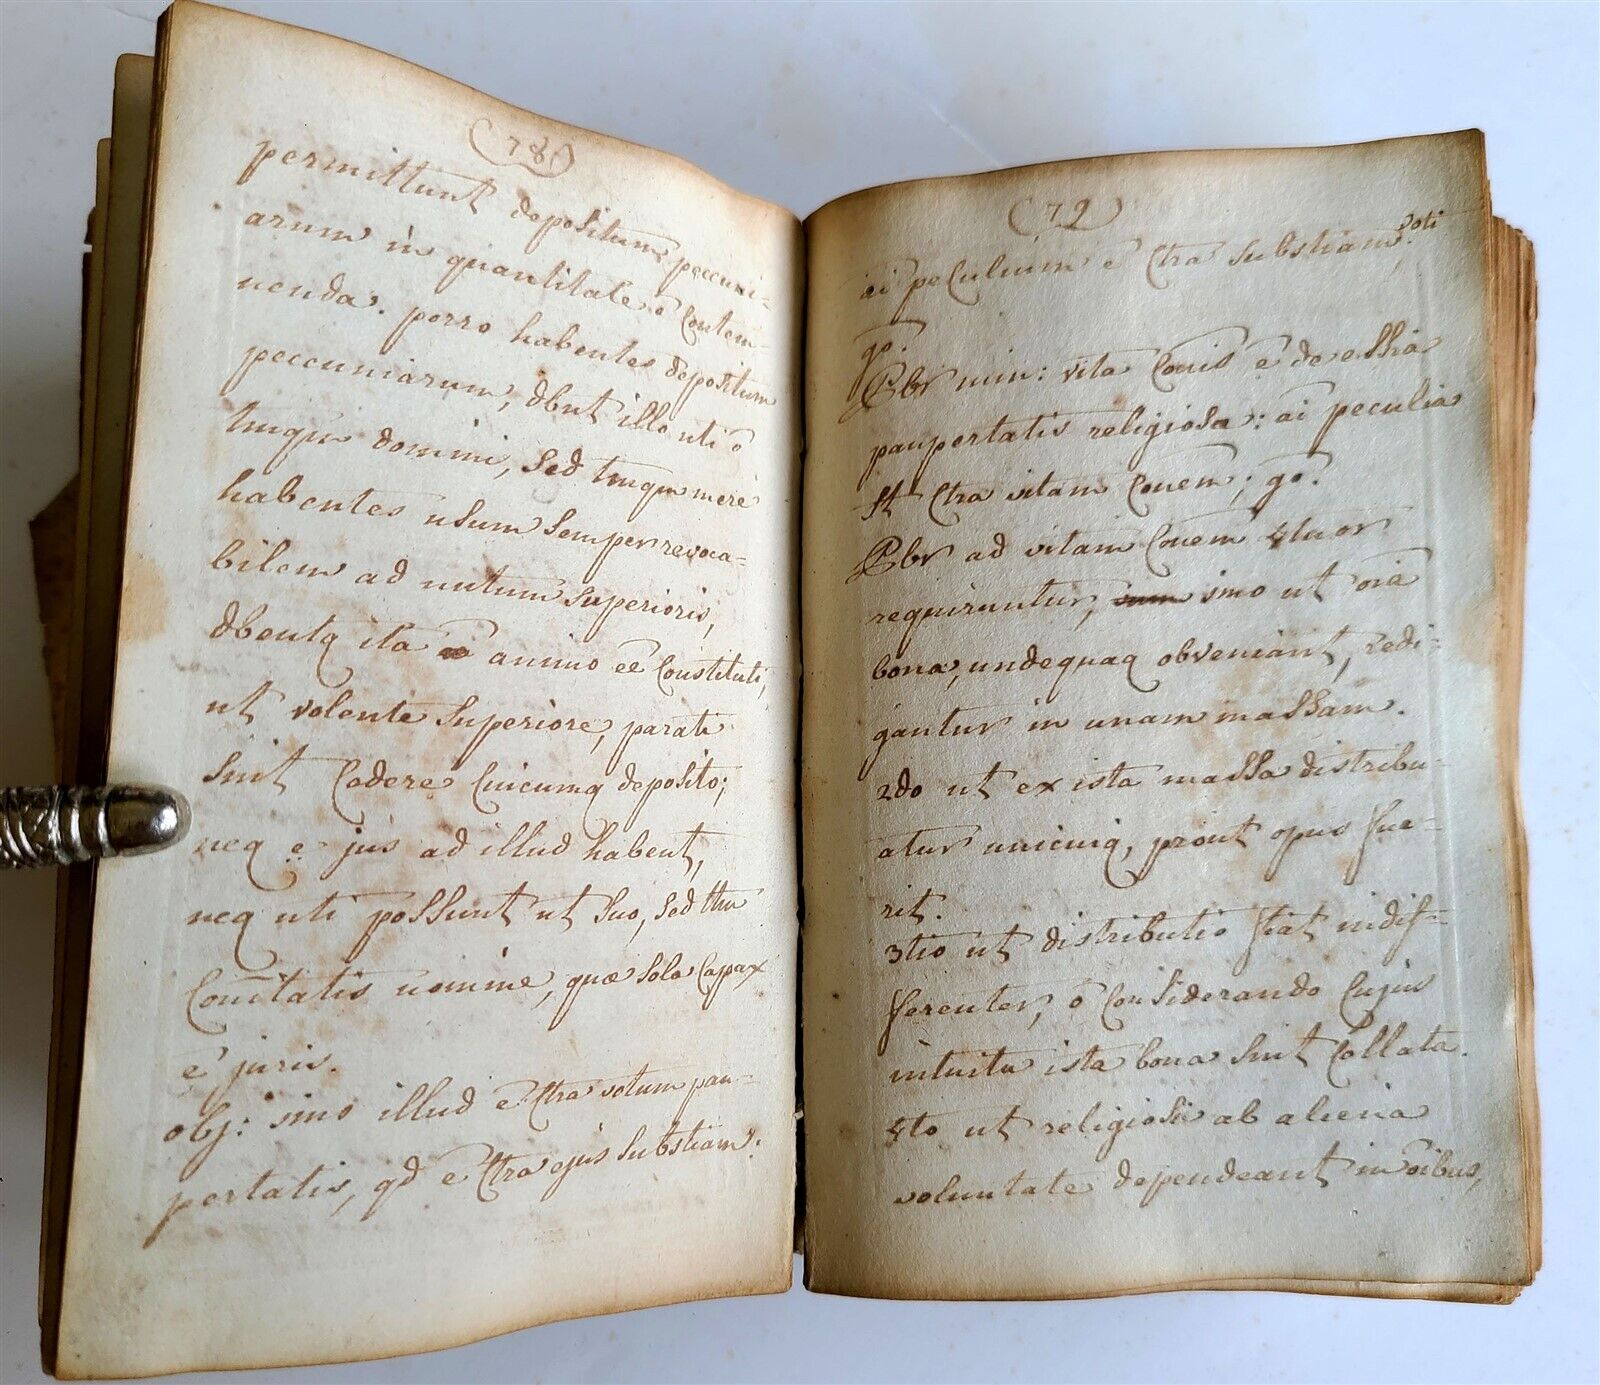 (78)
permittunt depositum pecuni-
arum in quantitate õ contem-
nenda. porro habentes depositum
peccuniarum, dbnt illo uti õ
tmqm domini, sed tmqm mere
habentes usum semper revoca=
bilem ad nutum superioris,
dbentq ita animo ẽẽ constituti,
ut volente superiore, parati
sint cedere cuicumq deposito;
neq e jus ad illud habent,
neq uti possunt ut suo, sed tm
Comĩtatis nomine, quæ sola capax
ẽ juris.
obj: imo illud ẽ ctra votum pau-
pertatis, qd ẽ ctra ejus substiam:
(79)
aĩ peculium ẽ ctra substiam voti.
go.
Pbr min: vita Coñis ẽ de essĩa
paupertatis religiosa: aĩ peculia
st ctra vitam Coñem; go.
Pbr ad vitam Coñem 4tuor
requiruntur, imo ut oĩa
bona, undequaq obveniant, redi-
gantur in unam massam.
2do ut ex ista massa distribu-
atur unicuiq, prout opus fue-
rit.
3tio ut distributio fiat indif-
ferenter, õ considerando cujus
intuitu ista bona sint collata.
4to ut religiosi ab aliena
voluntate dependeant in õibus,